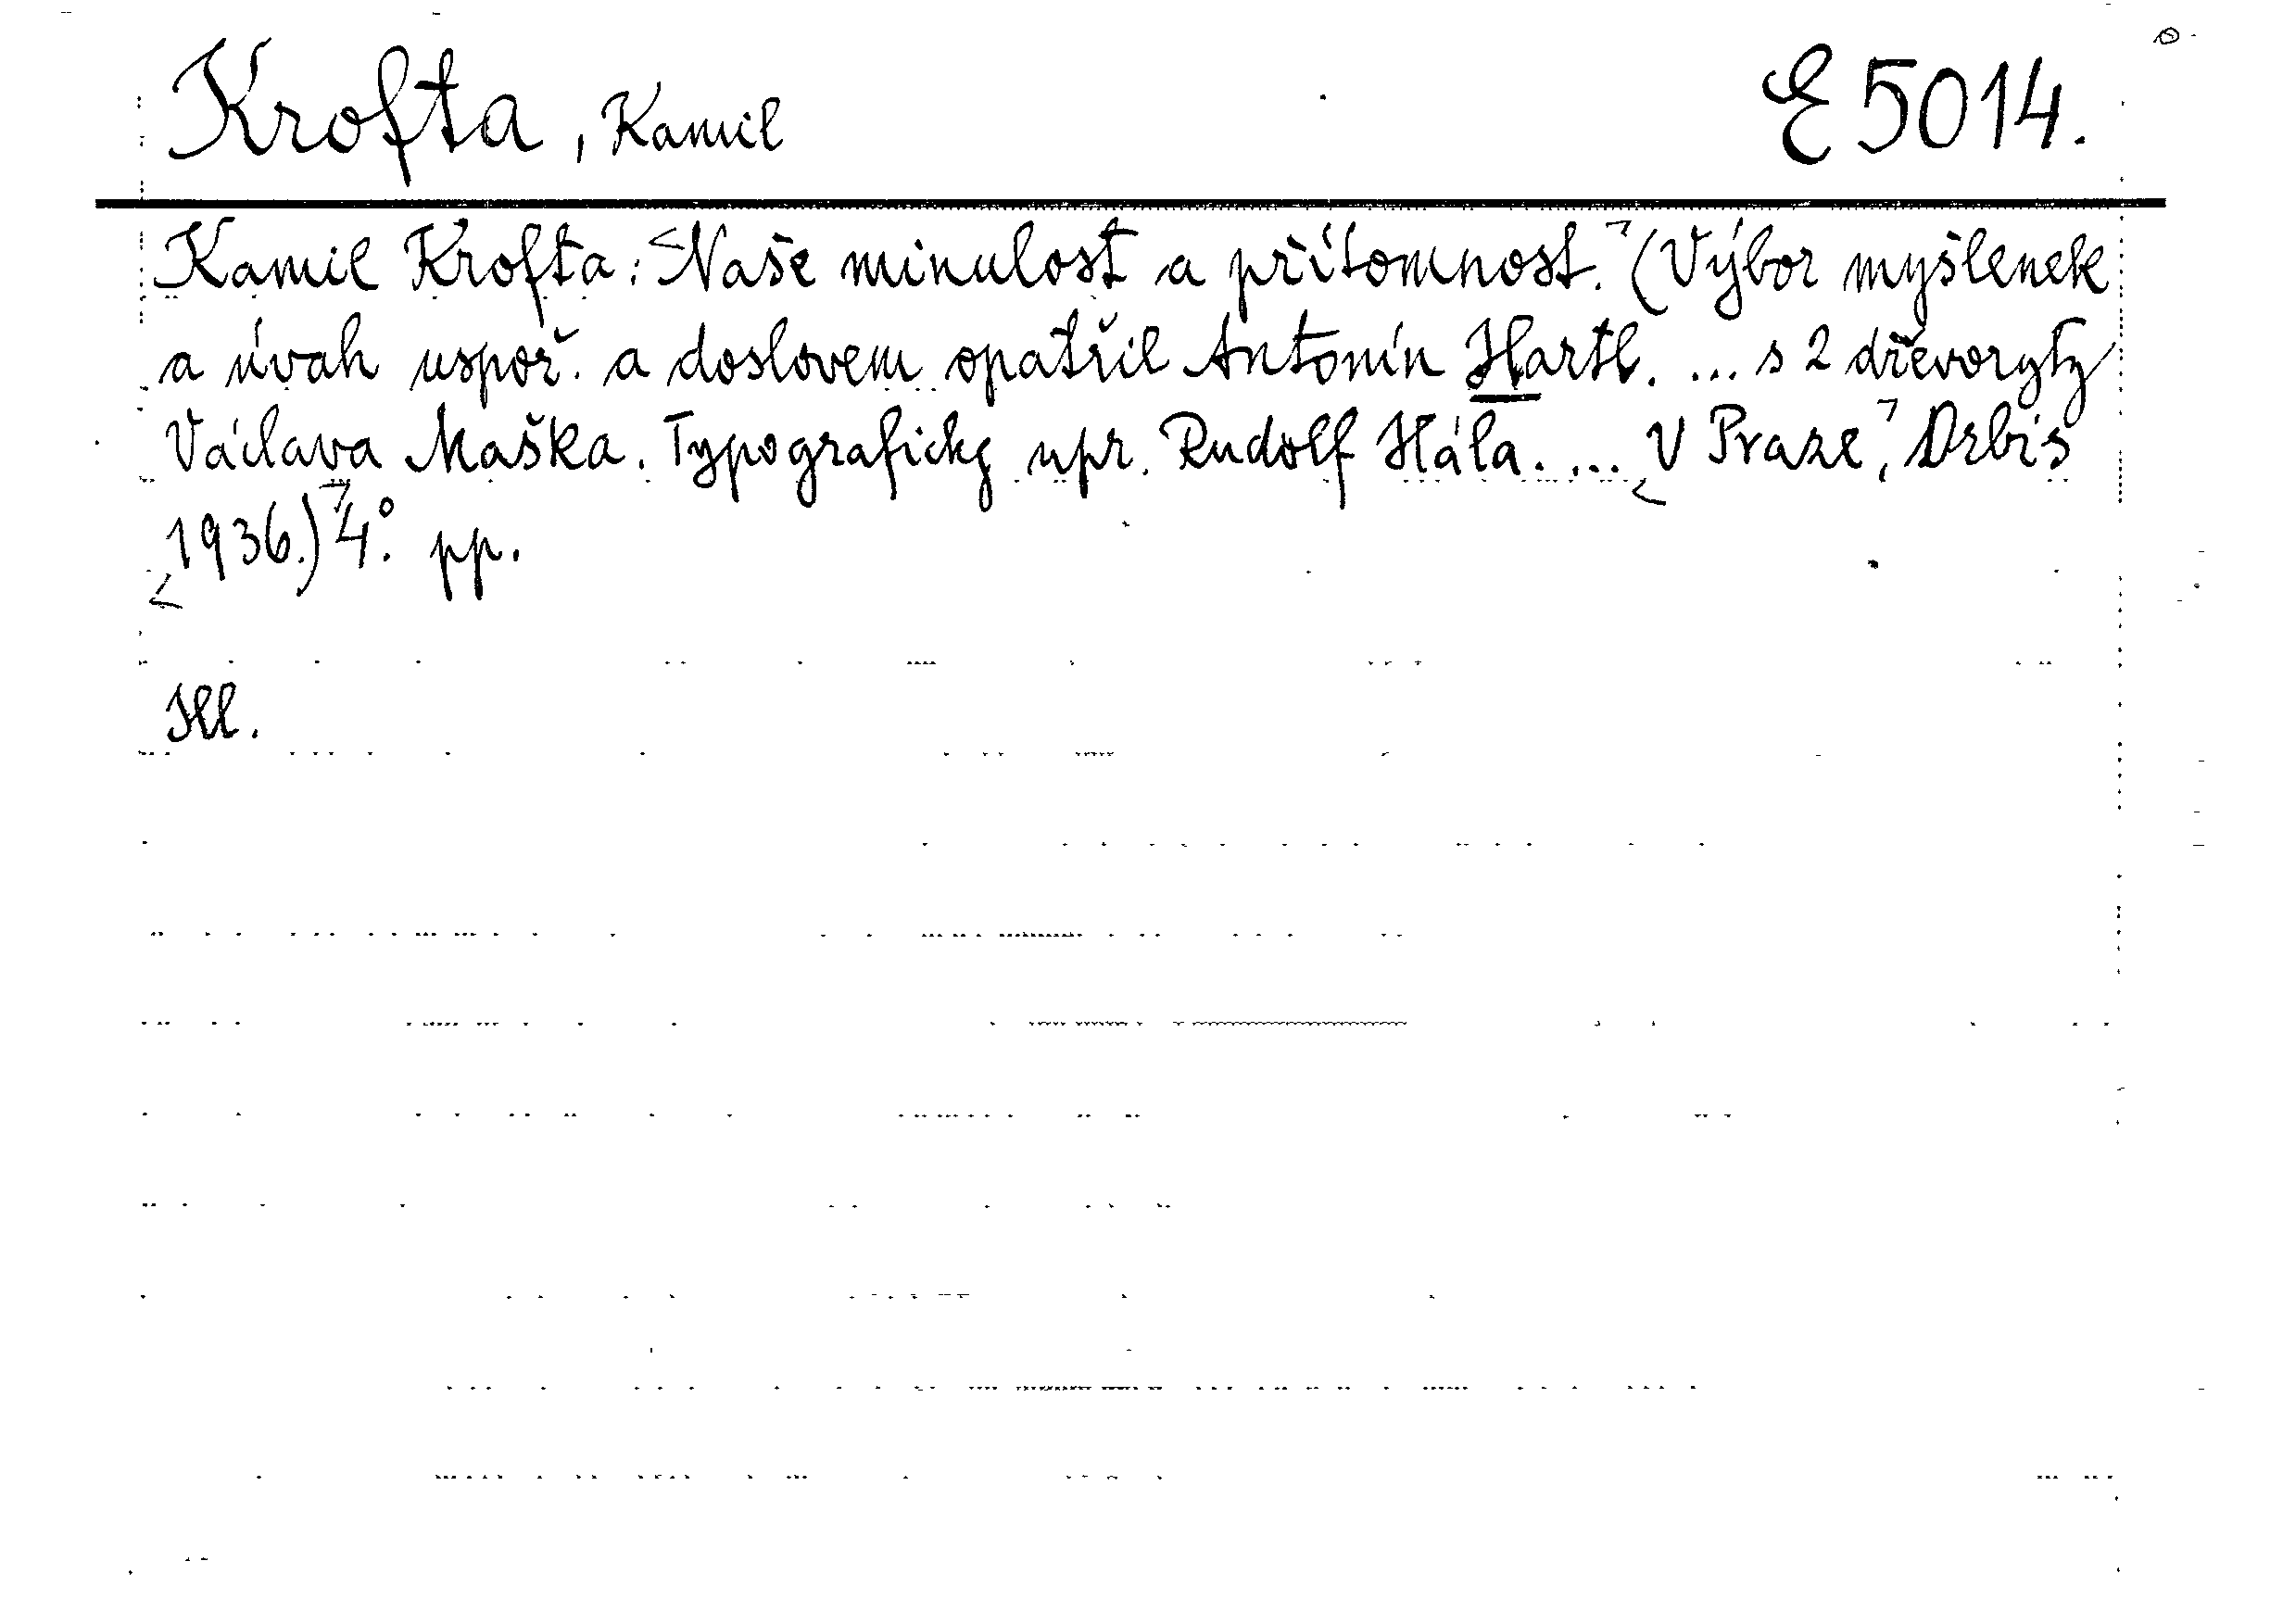 Krofta, Kamil E 5014.
Kamil Krofta: Naše minulost a přítomnost. (Výbor myšlenek
a úvah uspoř. a doslovem opatřil Antonín Hartl. ... s 2 dřevoryty
Václava Maška. Typograficky upr. Rudolf Hála. ... V Praze, Orbis
1936.) 4° pp.
Ill.